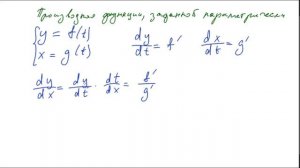 Производная функции, заданной параметрически
{ y = f(t)
x = g(t)
dy/dt = f' dx/dt = g'
dy/dx = dy/dt · dt/dx = f'/g'